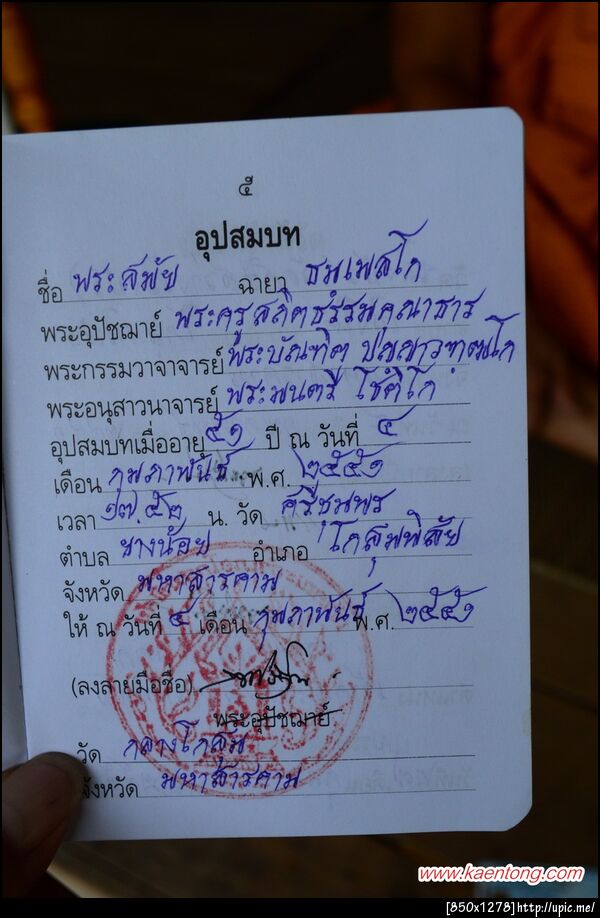 ๕
อุปสมบท
ชื่อ พระสมัย ฉายา ธมฺเมสโก
พระอุปัชฌาย์ พระครูสถิตธรรมคุณาธาร
พระกรรมวาจาจารย์ พระบัณฑิต ปญฺญาวฑฺฒโก
พระอนุสาวนาจารย์ พระมนตรี โชติโก
อุปสมบทเมื่ออายุ ๕๑ ปี ณ วันที่ ๔
เดือน กุมภาพันธ์ พ.ศ. ๒๕๕๑
เวลา ๑๗.๕๒ น. วัด ศรีชุมพร
ตำบล ยางน้อย อำเภอ โกสุมพิสัย
จังหวัด มหาสารคาม
ให้ ณ วันที่ ๔ เดือน กุมภาพันธ์ พ.ศ. ๒๕๕๑
(ลงลายมือชื่อ)
พระอุปัชฌาย์
วัด กลางโกสุม
จังหวัด มหาสารคาม
www.kaentong.com
[850x1278]http://upic.me/